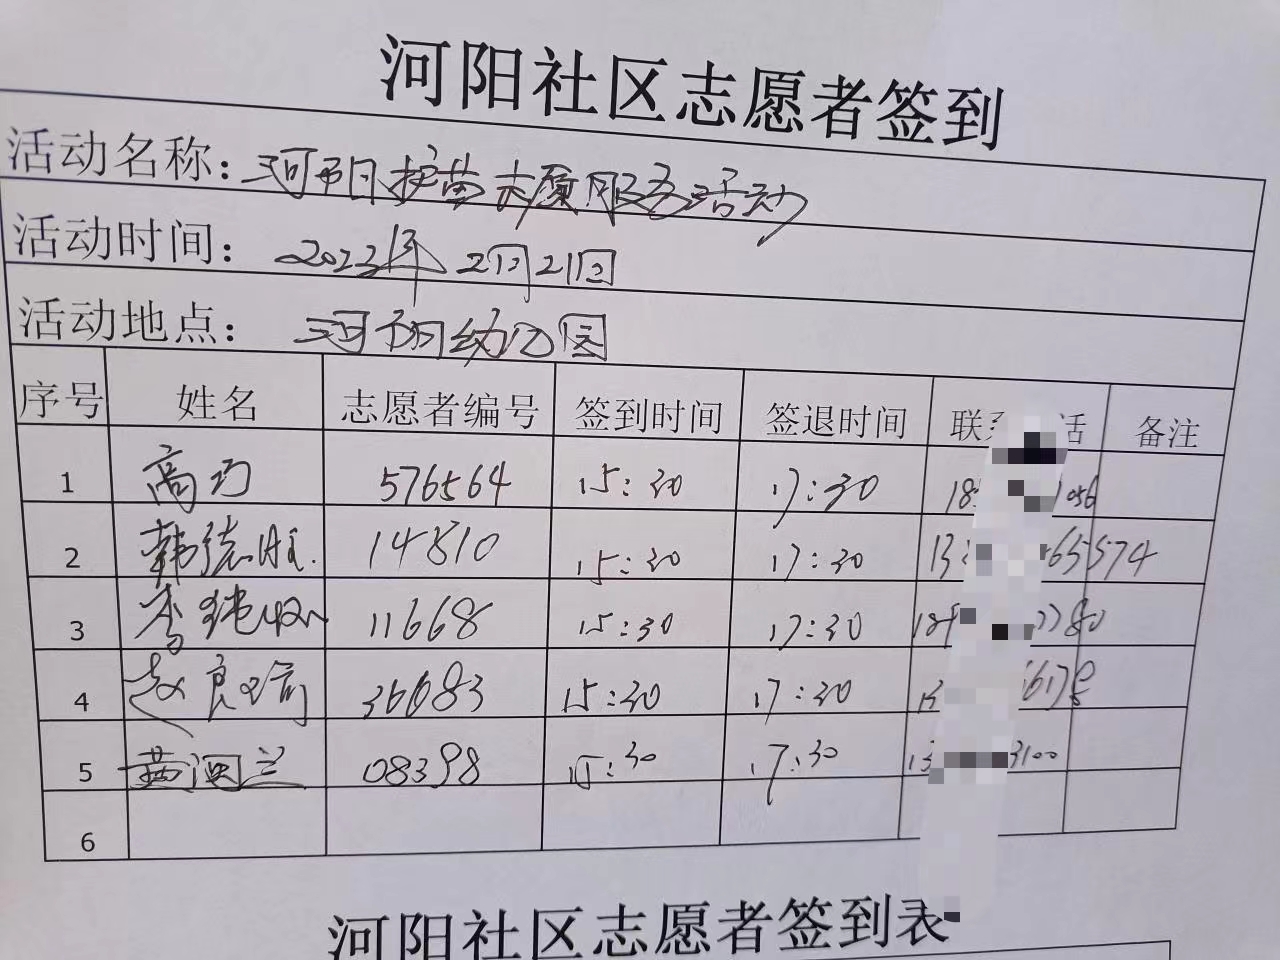 河阳社区志愿者签到
活动名称：河阳护苗志愿服务活动
活动时间：2023年2月21日
活动地点：河阳幼儿园
序号 姓名 志愿者编号 签到时间 签退时间 联系 话 备注
1 高巧 576564 15:30 17:30 18 1056
2 韩德胜 14810 15:30 17:30 13 65574
3 李 11668 15:30 17:30 18 7780
4 赵良 36683 15:30 17:30 13 6178
5 黄河兰 08398 15:30 17:30 13 3100
6
河阳社区志愿者签到表